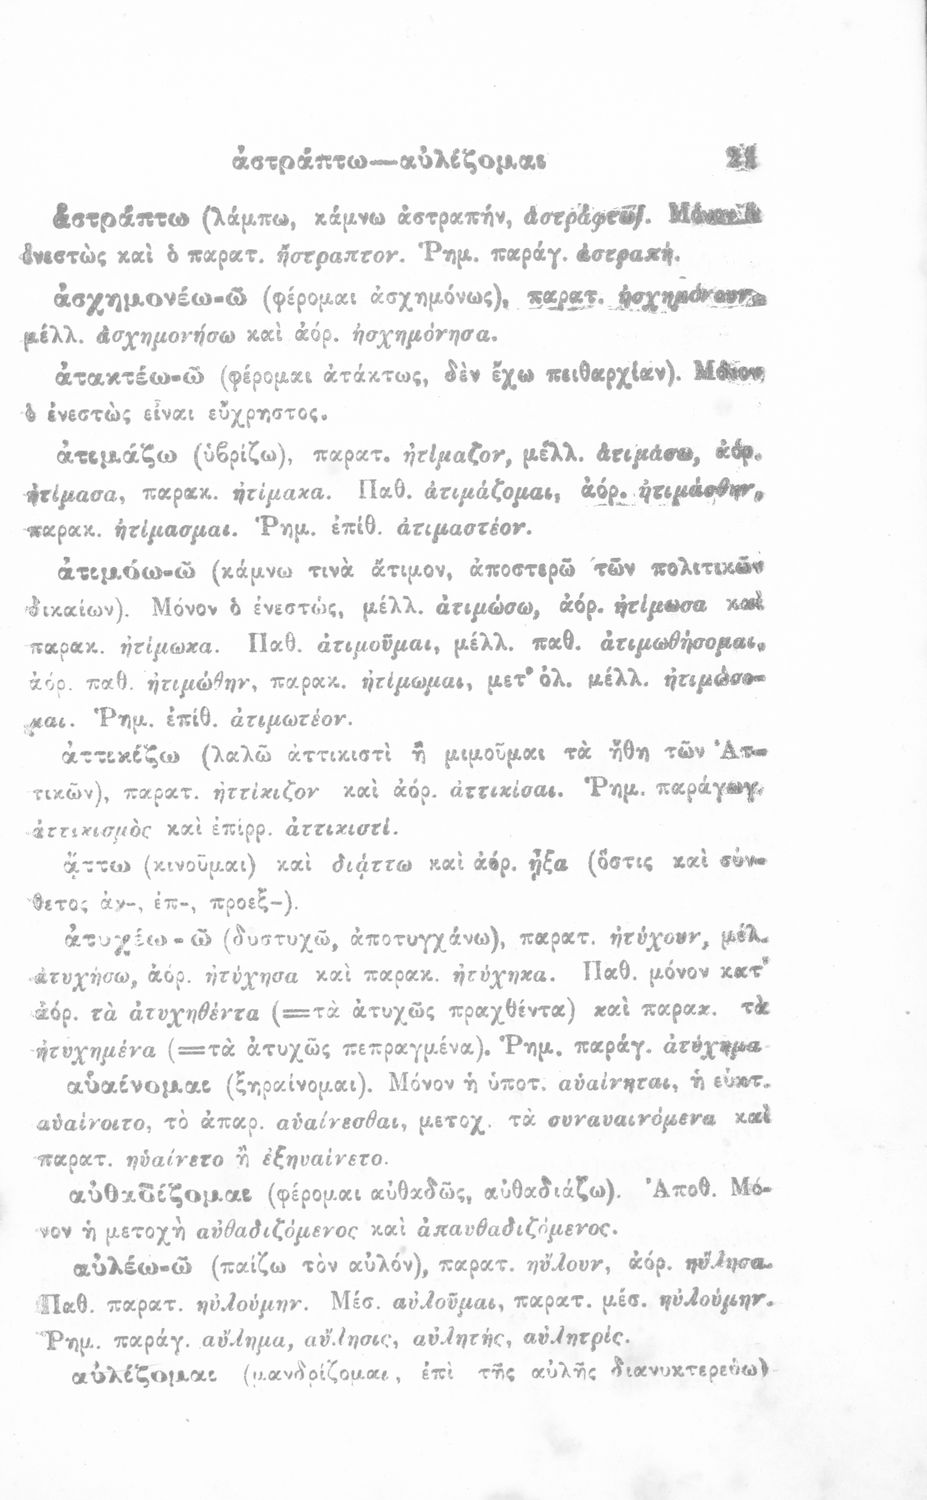 ἀστράπτω—αὐλίζομαι 21
ἀστράπτω (λάμπω, κάμνω ἀστραπήν, ἀστράφτω). Μόνον ὁ
ἐνεστὼς καὶ ὁ παρατ. ἤστραπτον. Ῥημ. παράγ. ἀστραπή.
ἀσχημονέω-ῶ (φέρομαι ἀσχημόνως), παρατ. ἠσχημόνουν,
μέλλ. ἀσχημονήσω καὶ ἀόρ. ἠσχημόνησα.
ἀτακτέω-ῶ (φέρομαι ἀτάκτως, δὲν ἔχω πειθαρχίαν). Μόνον
ὁ ἐνεστὼς εἶναι εὔχρηστος.
ἀτιμάζω (ὑβρίζω), παρατ. ἠτίμαζον, μέλλ. ἀτιμάσω, ἀόρ.
ἠτίμασα, παρακ. ἠτίμακα. Παθ. ἀτιμάζομαι, ἀόρ. ἠτιμάσθην,
παρακ. ἠτίμασμαι. Ῥημ. ἐπίθ. ἀτιμαστέον.
ἀτιμόω-ῶ (κάμνω τινὰ ἄτιμον, ἀποστερῶ τῶν πολιτικῶν
δικαίων). Μόνον ὁ ἐνεστώς, μέλλ. ἀτιμώσω, ἀόρ. ἠτίμωσα καὶ
παρακ. ἠτίμωκα. Παθ. ἀτιμοῦμαι, μέλλ. παθ. ἀτιμωθήσομαι,
ἀόρ. παθ. ἠτιμώθην, παρακ. ἠτίμωμαι, μετ' ὀλ. μέλλ. ἠτιμώσο-
μαι. Ῥημ. ἐπίθ. ἀτιμωτέον.
ἀττικίζω (λαλῶ ἀττικιστὶ ἢ μιμοῦμαι τὰ ἤθη τῶν Ἀτ-
τικῶν), παρατ. ἠττίκιζον καὶ ἀόρ. ἀττικίσαι. Ῥημ. παράγωγ.
ἀττικισμὸς καὶ ἐπίρρ. ἀττικιστί.
ᾄττω (κινοῦμαι) καὶ διᾴττω καὶ ἀόρ. ᾖξα (ὅστις καὶ σύν-
θετος ἀν-, ἐπ-, προεξ-).
ἀτυχέω - ῶ (δυστυχῶ, ἀποτυγχάνω), παρατ. ἠτύχουν, μέλ.
ἀτυχήσω, ἀόρ. ἠτύχησα καὶ παρακ. ἠτύχηκα. Παθ. μόνον κατ'
ἀόρ. τὰ ἀτυχηθέντα (=τὰ ἀτυχῶς πραχθέντα) καὶ παρακ. τὰ
ἠτυχημένα (=τὰ ἀτυχῶς πεπραγμένα). Ῥημ. παράγ. ἀτύχημα
αὑαίνομαι (ξηραίνομαι). Μόνον ἡ ὑποτ. αὑαίνηται, ἡ εὐκτ.
αὑαίνοιτο, τὸ ἀπαρ. αὑαίνεσθαι, μετοχ. τὰ συναυαινόμενα καὶ
παρατ. ηὑαίνετο ἢ ἐξηυαίνετο.
αὐθαδίζομαι (φέρομαι αὐθαδῶς, αὐθαδιάζω). Ἀποθ. Μό-
νον ἡ μετοχὴ αὐθαδιζόμενος καὶ ἀπαυθαδιζόμενος.
αὐλέω-ῶ (παίζω τὸν αὐλόν), παρατ. ηὔλουν, ἀόρ. ηὔλησα.
Παθ. παρατ. ηὐλούμην. Μέσ. αὐλοῦμαι, παρατ. μέσ. ηὐλούμην.
Ῥημ. παράγ. αὔλημα, αὔλησις, αὐλητής, αὐλητρίς.
αὐλίζομαι (μανδρίζομαι, ἐπὶ τῆς αὐλῆς διανυκτερεύω)